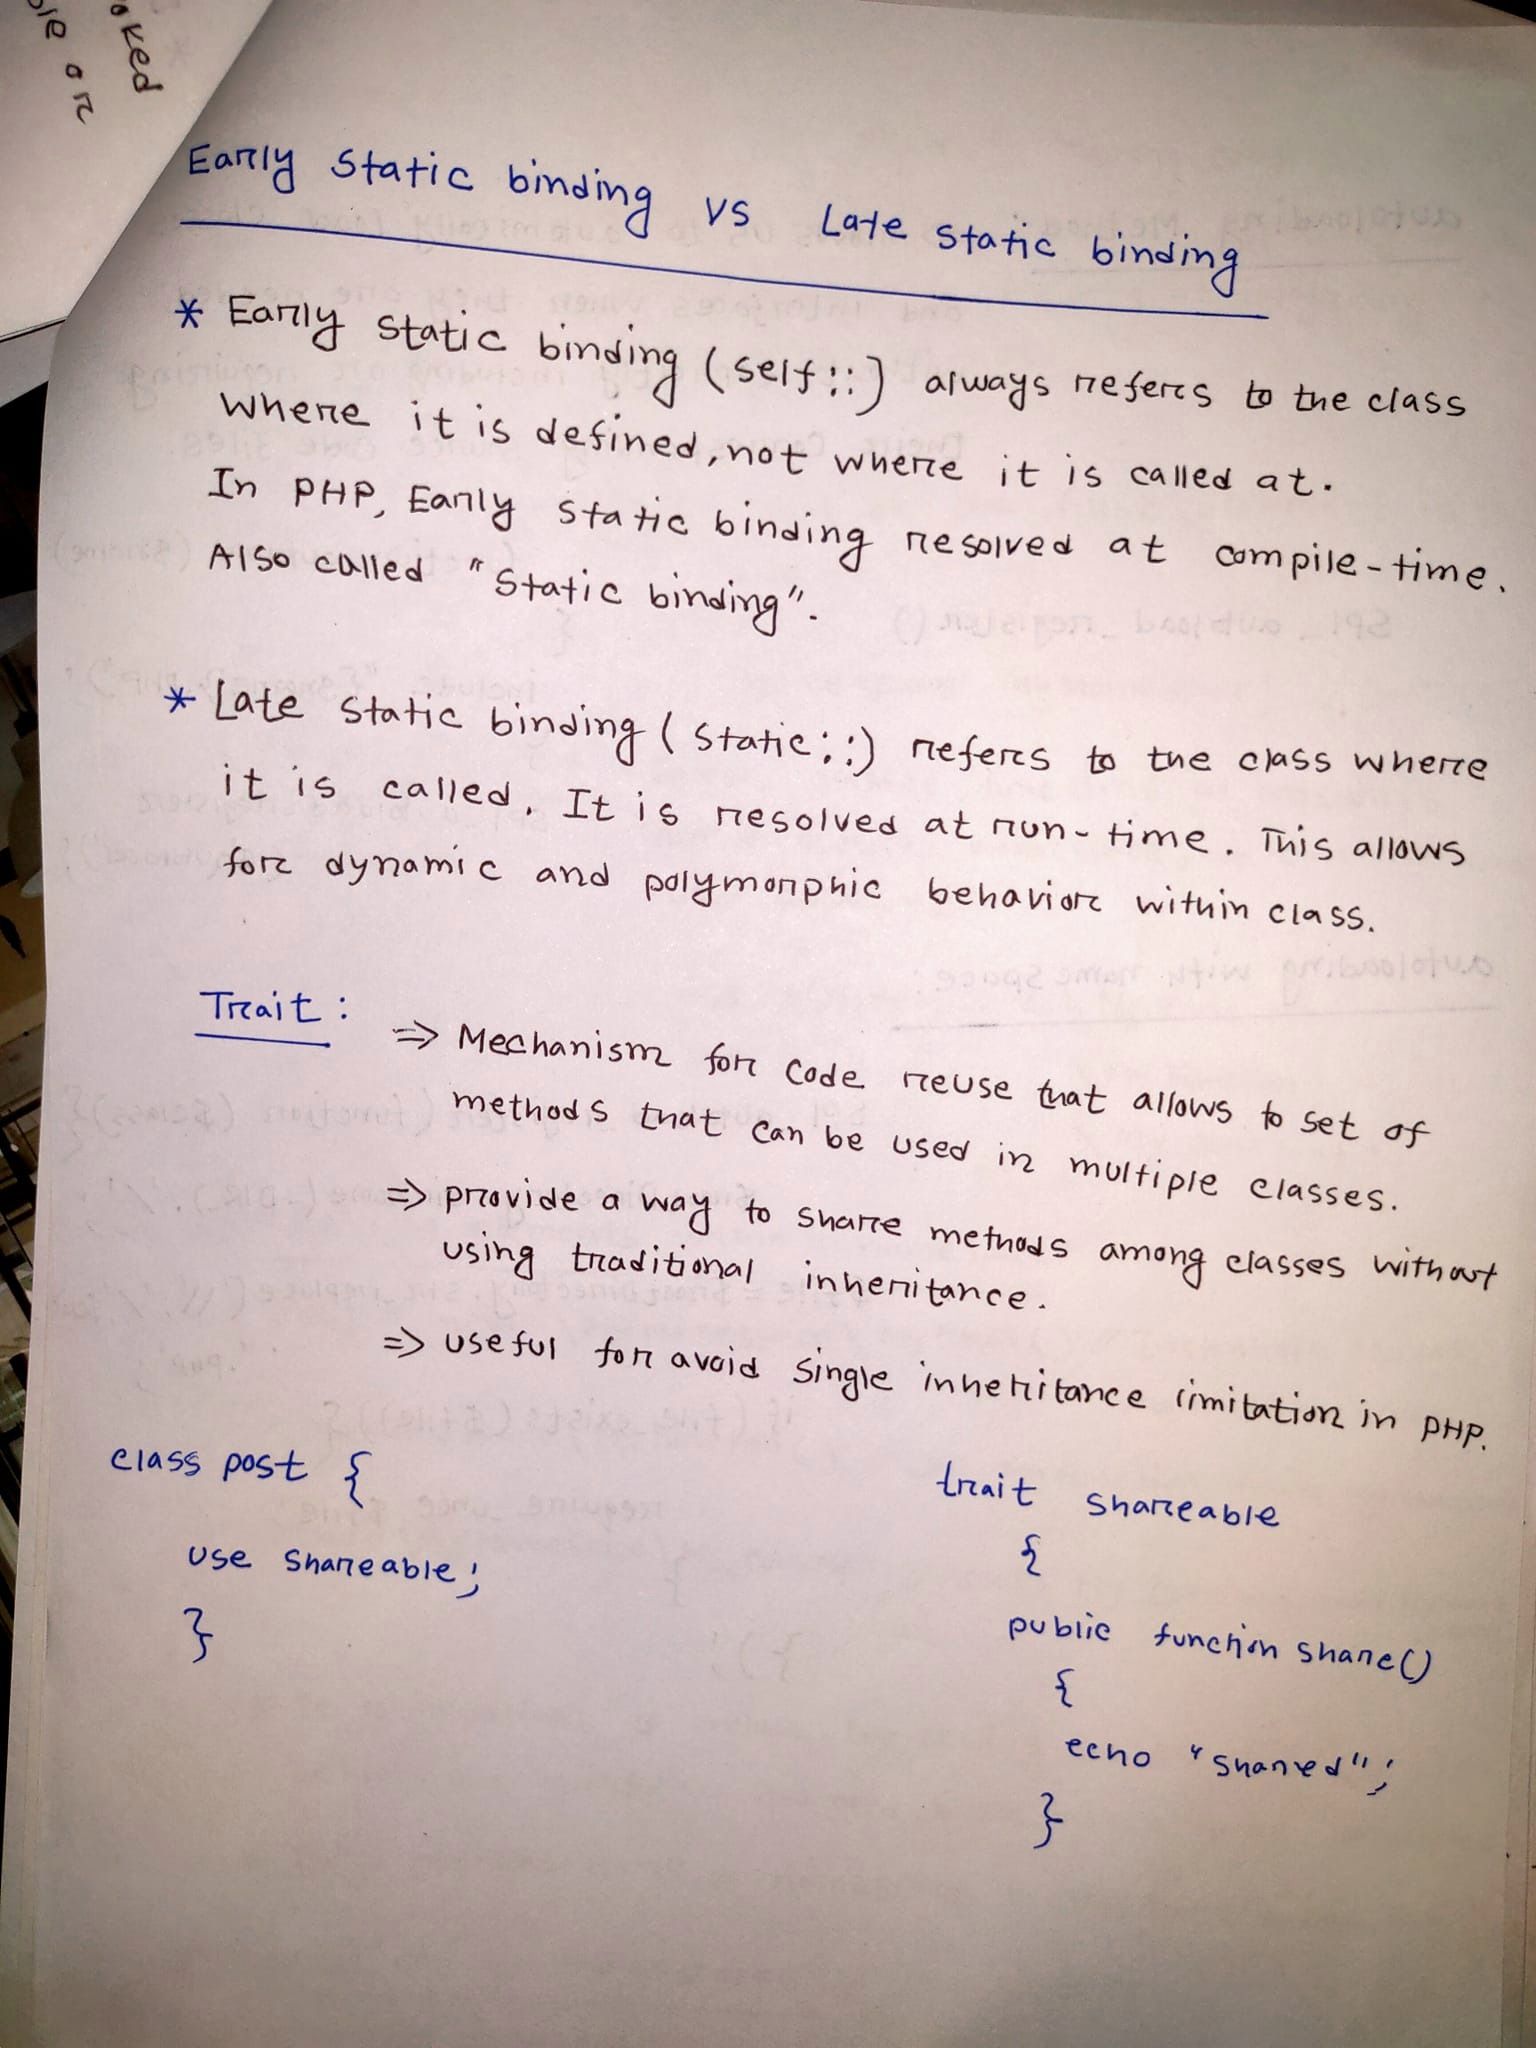 oked
ole or
Early static binding vs Late static binding
* Early static binding (self::) always refers to the class
where it is defined, not where it is called at.
In PHP, Early static binding resolved at compile-time.
Also called "Static binding".
* Late static binding (static::) refers to the class where
it is called. It is resolved at run-time. This allows
for dynamic and polymorphic behavior within class.
Trait: => Mechanism for code reuse that allows to set of
methods that can be used in multiple classes.
=> provide a way to share methods among classes without
using traditional inheritance.
=> useful for avoid single inheritance limitation in PHP.
class post {
use shareable;
}
trait shareable
{
public function share()
{
echo "shared";
}